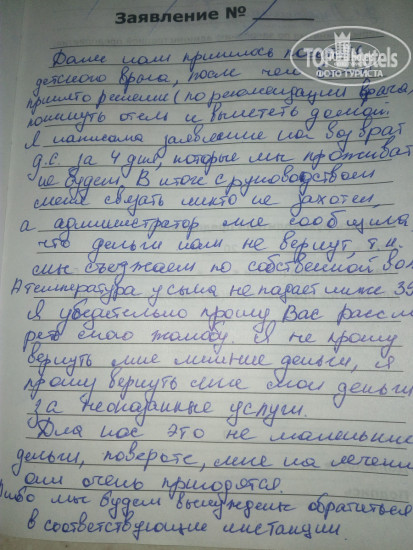 Заявление №
TOP Hotels
ФОТО ТУРИСТА
Далее нам пришлось
детского врача, после чего
принято решение (по рекомендации врача)
покинуть отель и вылететь домой.
Я написала заявление на возврат
д.с. за 4 дня, которые мы проживать
не будем. В итоге с руководством
меня связать никто не захотел,
а администратор мне сообщила,
что деньги нам не вернут, т.к.
мы съезжаем по собственной вол
А температура у сына не падает ниже 39
Я убедительно прошу Вас рассм
реть мою жалобу. Я не прошу
вернуть мне лишние деньги, я
прошу вернуть мне мои деньги
за неоказанные услуги.
Для нас это не маленькие
деньги, поверьте, мне на лечение
они очень пригодятся.
Либо мы будем вынуждены обратиться
в соответствующие инстанции.